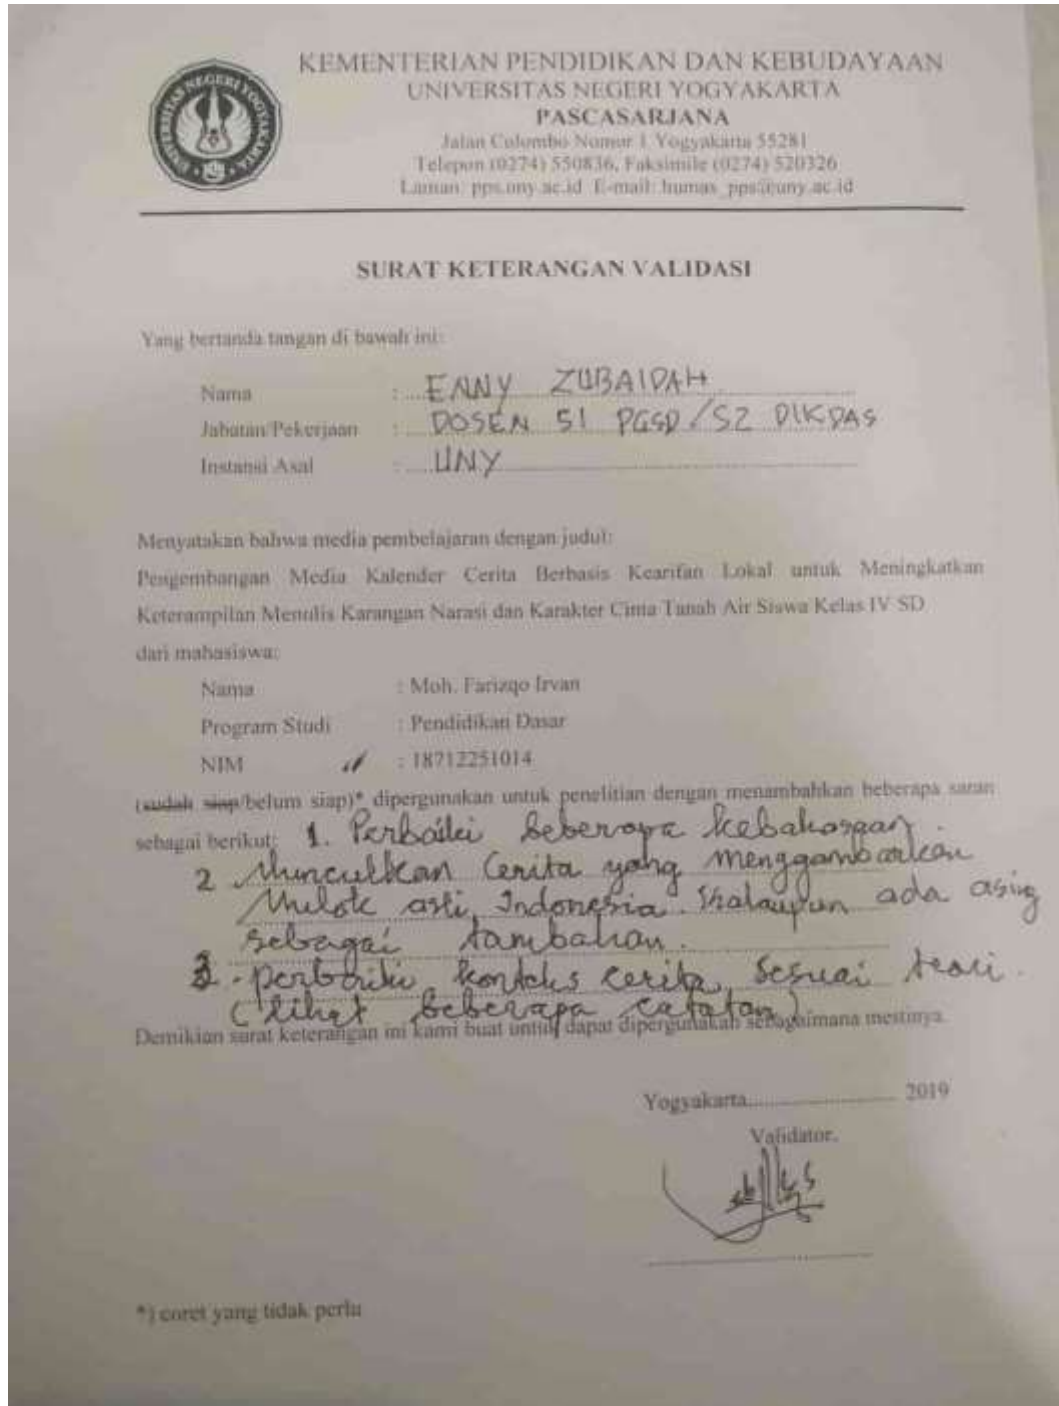 UNIVERSITAS NEGERI YOGYAKARTA
KEMENTERIAN PENDIDIKAN DAN KEBUDAYAAN
UNIVERSITAS NEGERI YOGYAKARTA
PASCASARJANA
Jalan Colombo Nomor 1 Yogyakarta 55281
Telepon (0274) 550836, Faksimile (0274) 520326
Laman: pps.uny.ac.id E-mail: humas_pps@uny.ac.id
SURAT KETERANGAN VALIDASI
Yang bertanda tangan di bawah ini:
Nama : ENNY ZUBAIDAH
Jabatan/Pekerjaan : DOSEN S1 PGSD/S2 DIKDAS
Instansi Asal : UNY
Menyatakan bahwa media pembelajaran dengan judul:
Pengembangan Media Kalender Cerita Berbasis Kearifan Lokal untuk Meningkatkan
Keterampilan Menulis Karangan Narasi dan Karakter Cinta Tanah Air Siswa Kelas IV SD
dari mahasiswa:
Nama : Moh. Farizqo Irvan
Program Studi : Pendidikan Dasar
NIM : 18712251014
(sudah siap/belum siap)* dipergunakan untuk penelitian dengan menambahkan beberapa saran
sebagai berikut: 1. Perbaiki beberapa kebahasaan.
2 Munculkan Cerita yang menggambarkan
Mulok asli Indonesia. Walaupun ada asing
sebagai tambahan.
3. perbaiki konteks cerita sesuai teori.
(lihat beberapa catatan)
Demikian surat keterangan ini kami buat untuk dapat dipergunakan sebagaimana mestinya.
Yogyakarta.............................. 2019
Validator,
*) coret yang tidak perlu